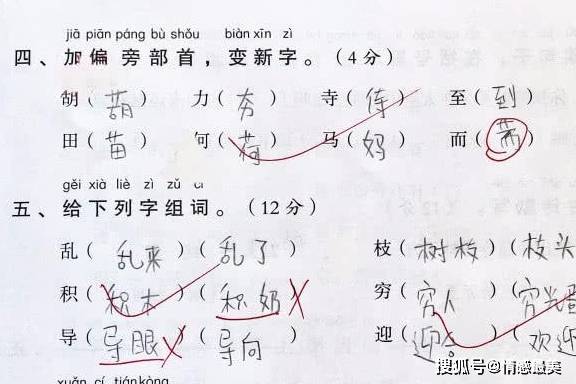 jiā piān páng bù shǒu biàn xīn zì
四、加偏旁部首，变新字。(4分)
胡(葫) 力(夯) 寺(待) 至(到)
田(苗) 何(荷) 马(妈) 而(需)
gěi xià liè zì zǔ cí
五、给下列字组词。(12分)
乱(乱来)(乱了) 枝(树枝)(枝头
积(积木)(积奶) 穷(穷人)(穷光蛋
导(导眼)(导向) 迎(迎合)(欢迎
xuǎn cí tián kòng
搜狐号@情感最美